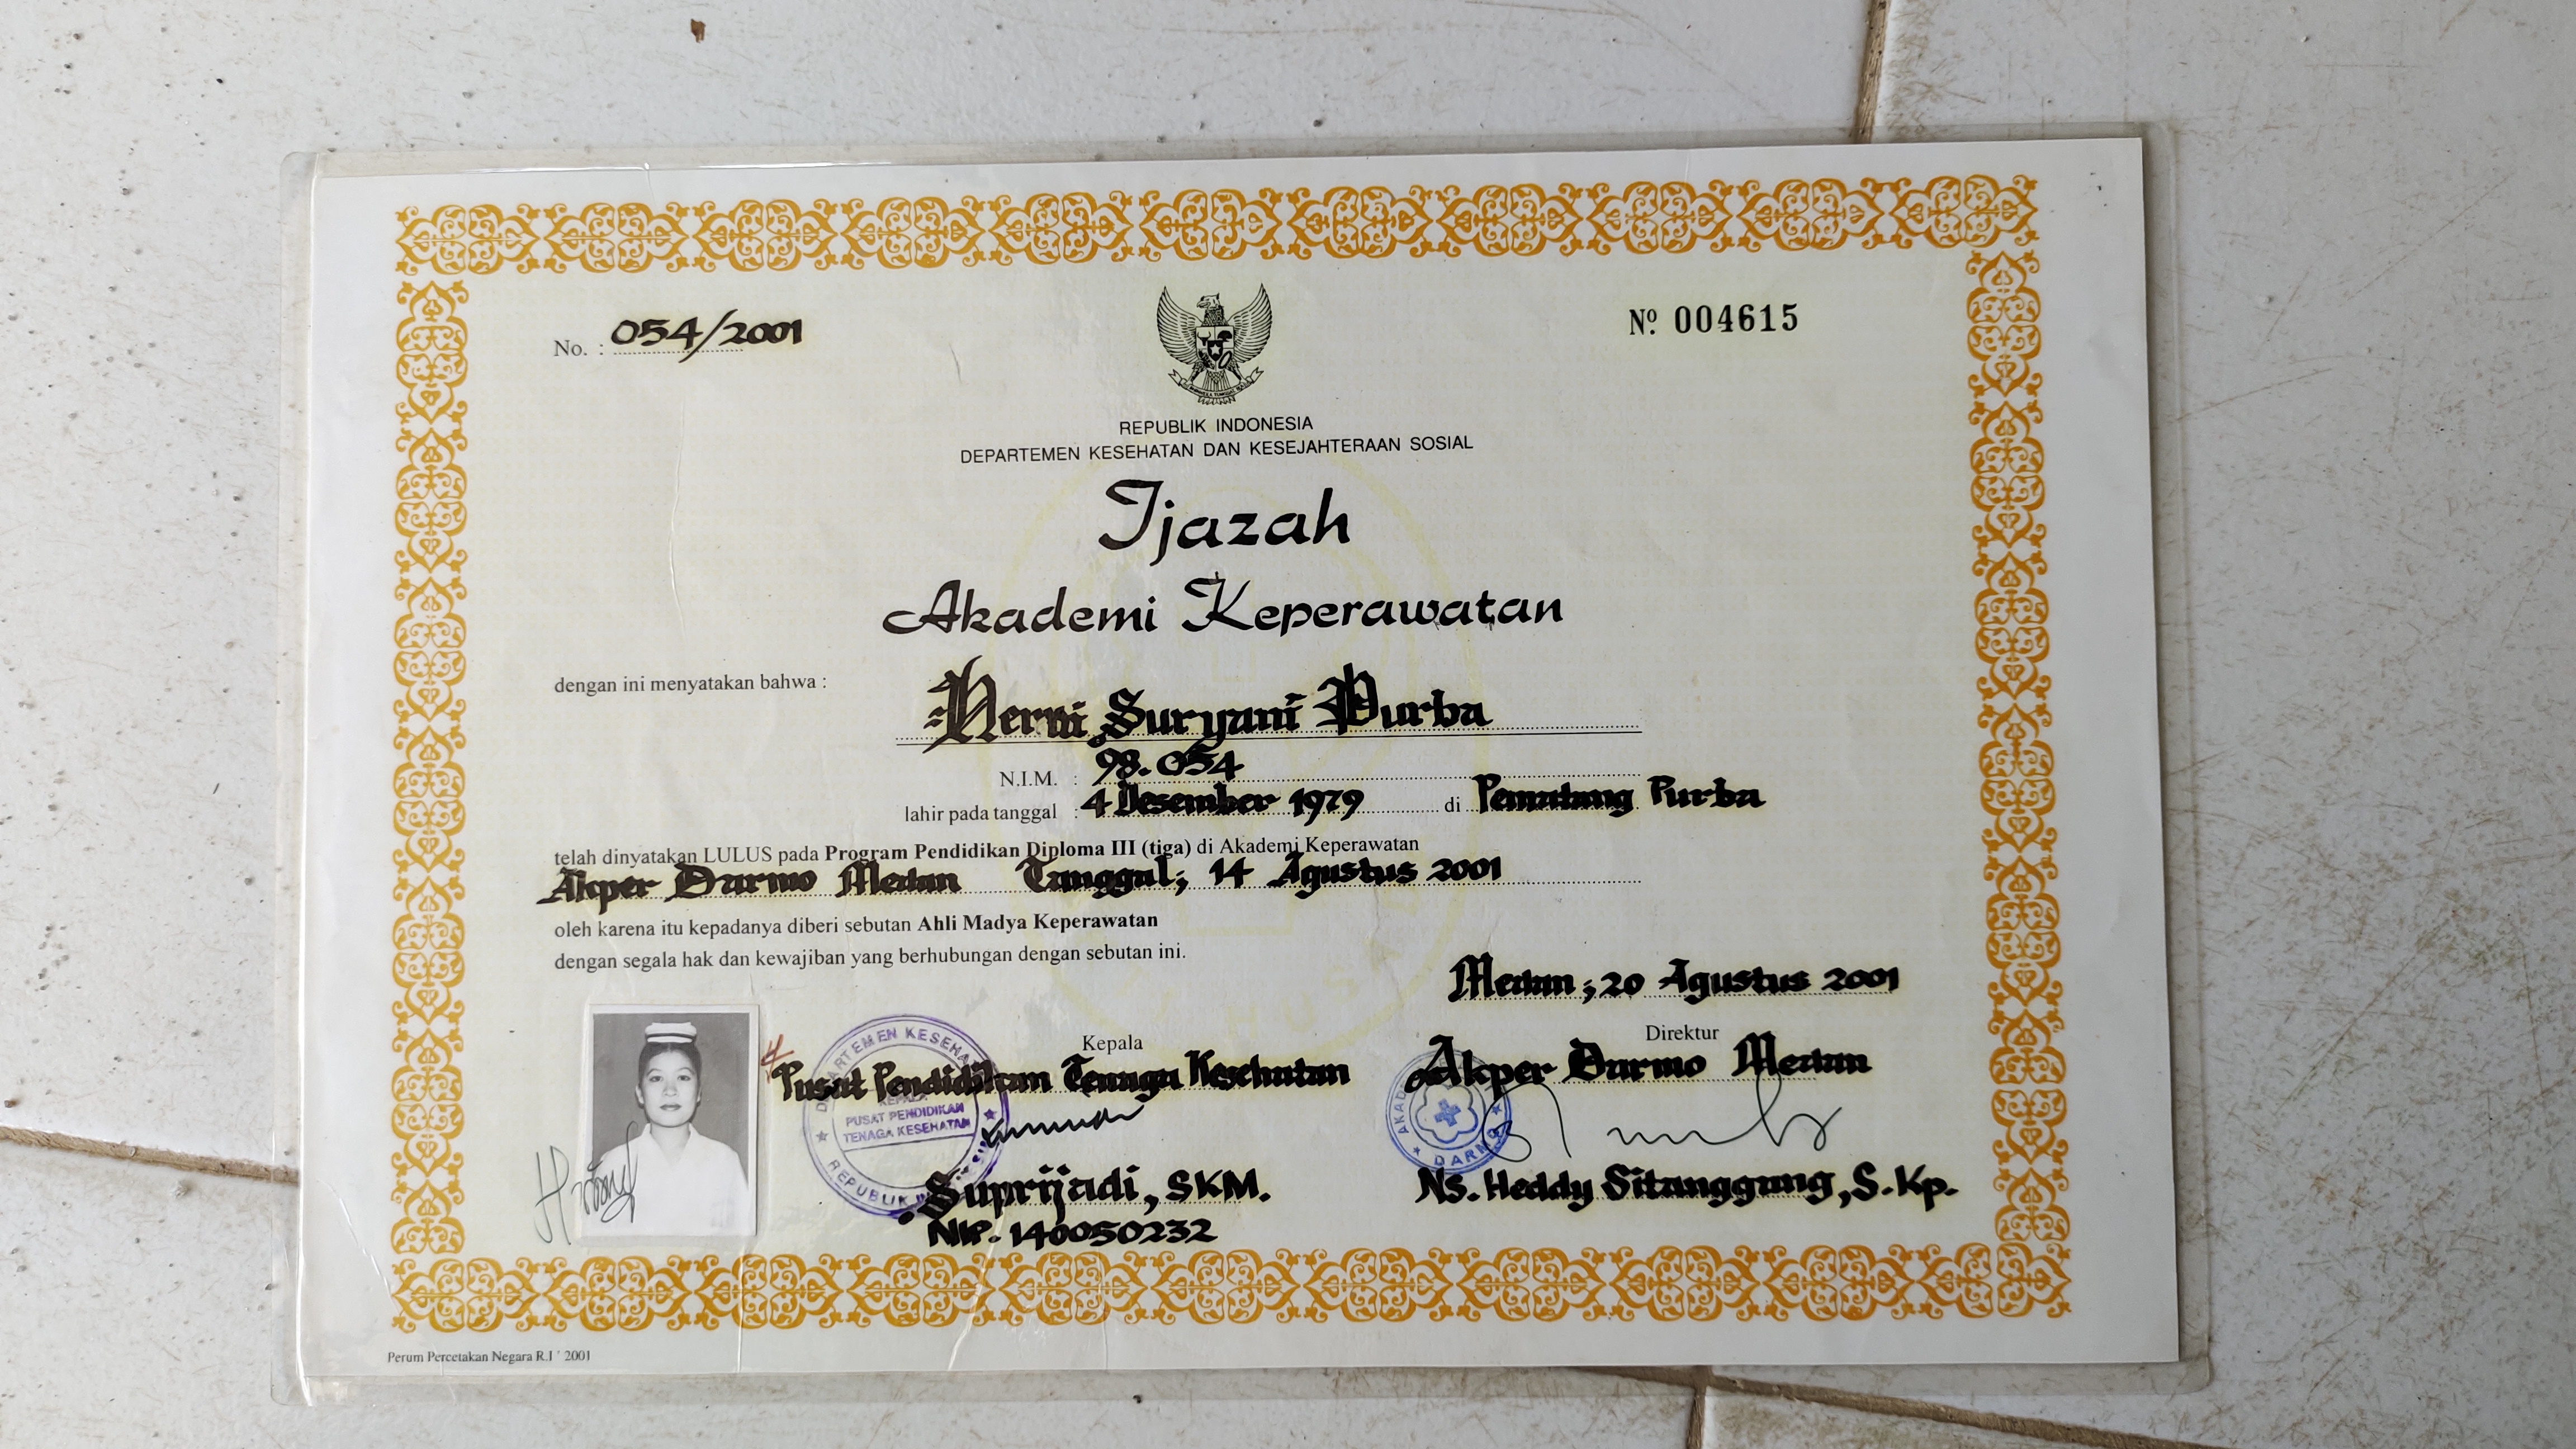 No. : 054/2001
Nº 004615
REPUBLIK INDONESIA
DEPARTEMEN KESEHATAN DAN KESEJAHTERAAN SOSIAL
Ijazah
Akademi Keperawatan
dengan ini menyatakan bahwa :
Suryani Purba
N.I.M. : 98.054
lahir pada tanggal : 4 Desember 1979 di Pematang Purba
telah dinyatakan LULUS pada Program Pendidikan Diploma III (tiga) di Akademi Keperawatan
Akper Darmo Medan Tanggal; 14 Agustus 2001
oleh karena itu kepadanya diberi sebutan Ahli Madya Keperawatan
dengan segala hak dan kewajiban yang berhubungan dengan sebutan ini.
Medan ; 20 Agustus 2001
Kepala
Pusat Pendidikan Tenaga Kesehatan
Direktur
Akper Darmo Medan
KEPALA
PUSAT PENDIDIKAN
TENAGA KESEHATAN
REPUBLIK
DARMO
Suprijadi, SKM.
NIP. 140050232
Ns. Heddy Sitanggang, S.Kp.
Perum Percetakan Negara R.I ' 2001